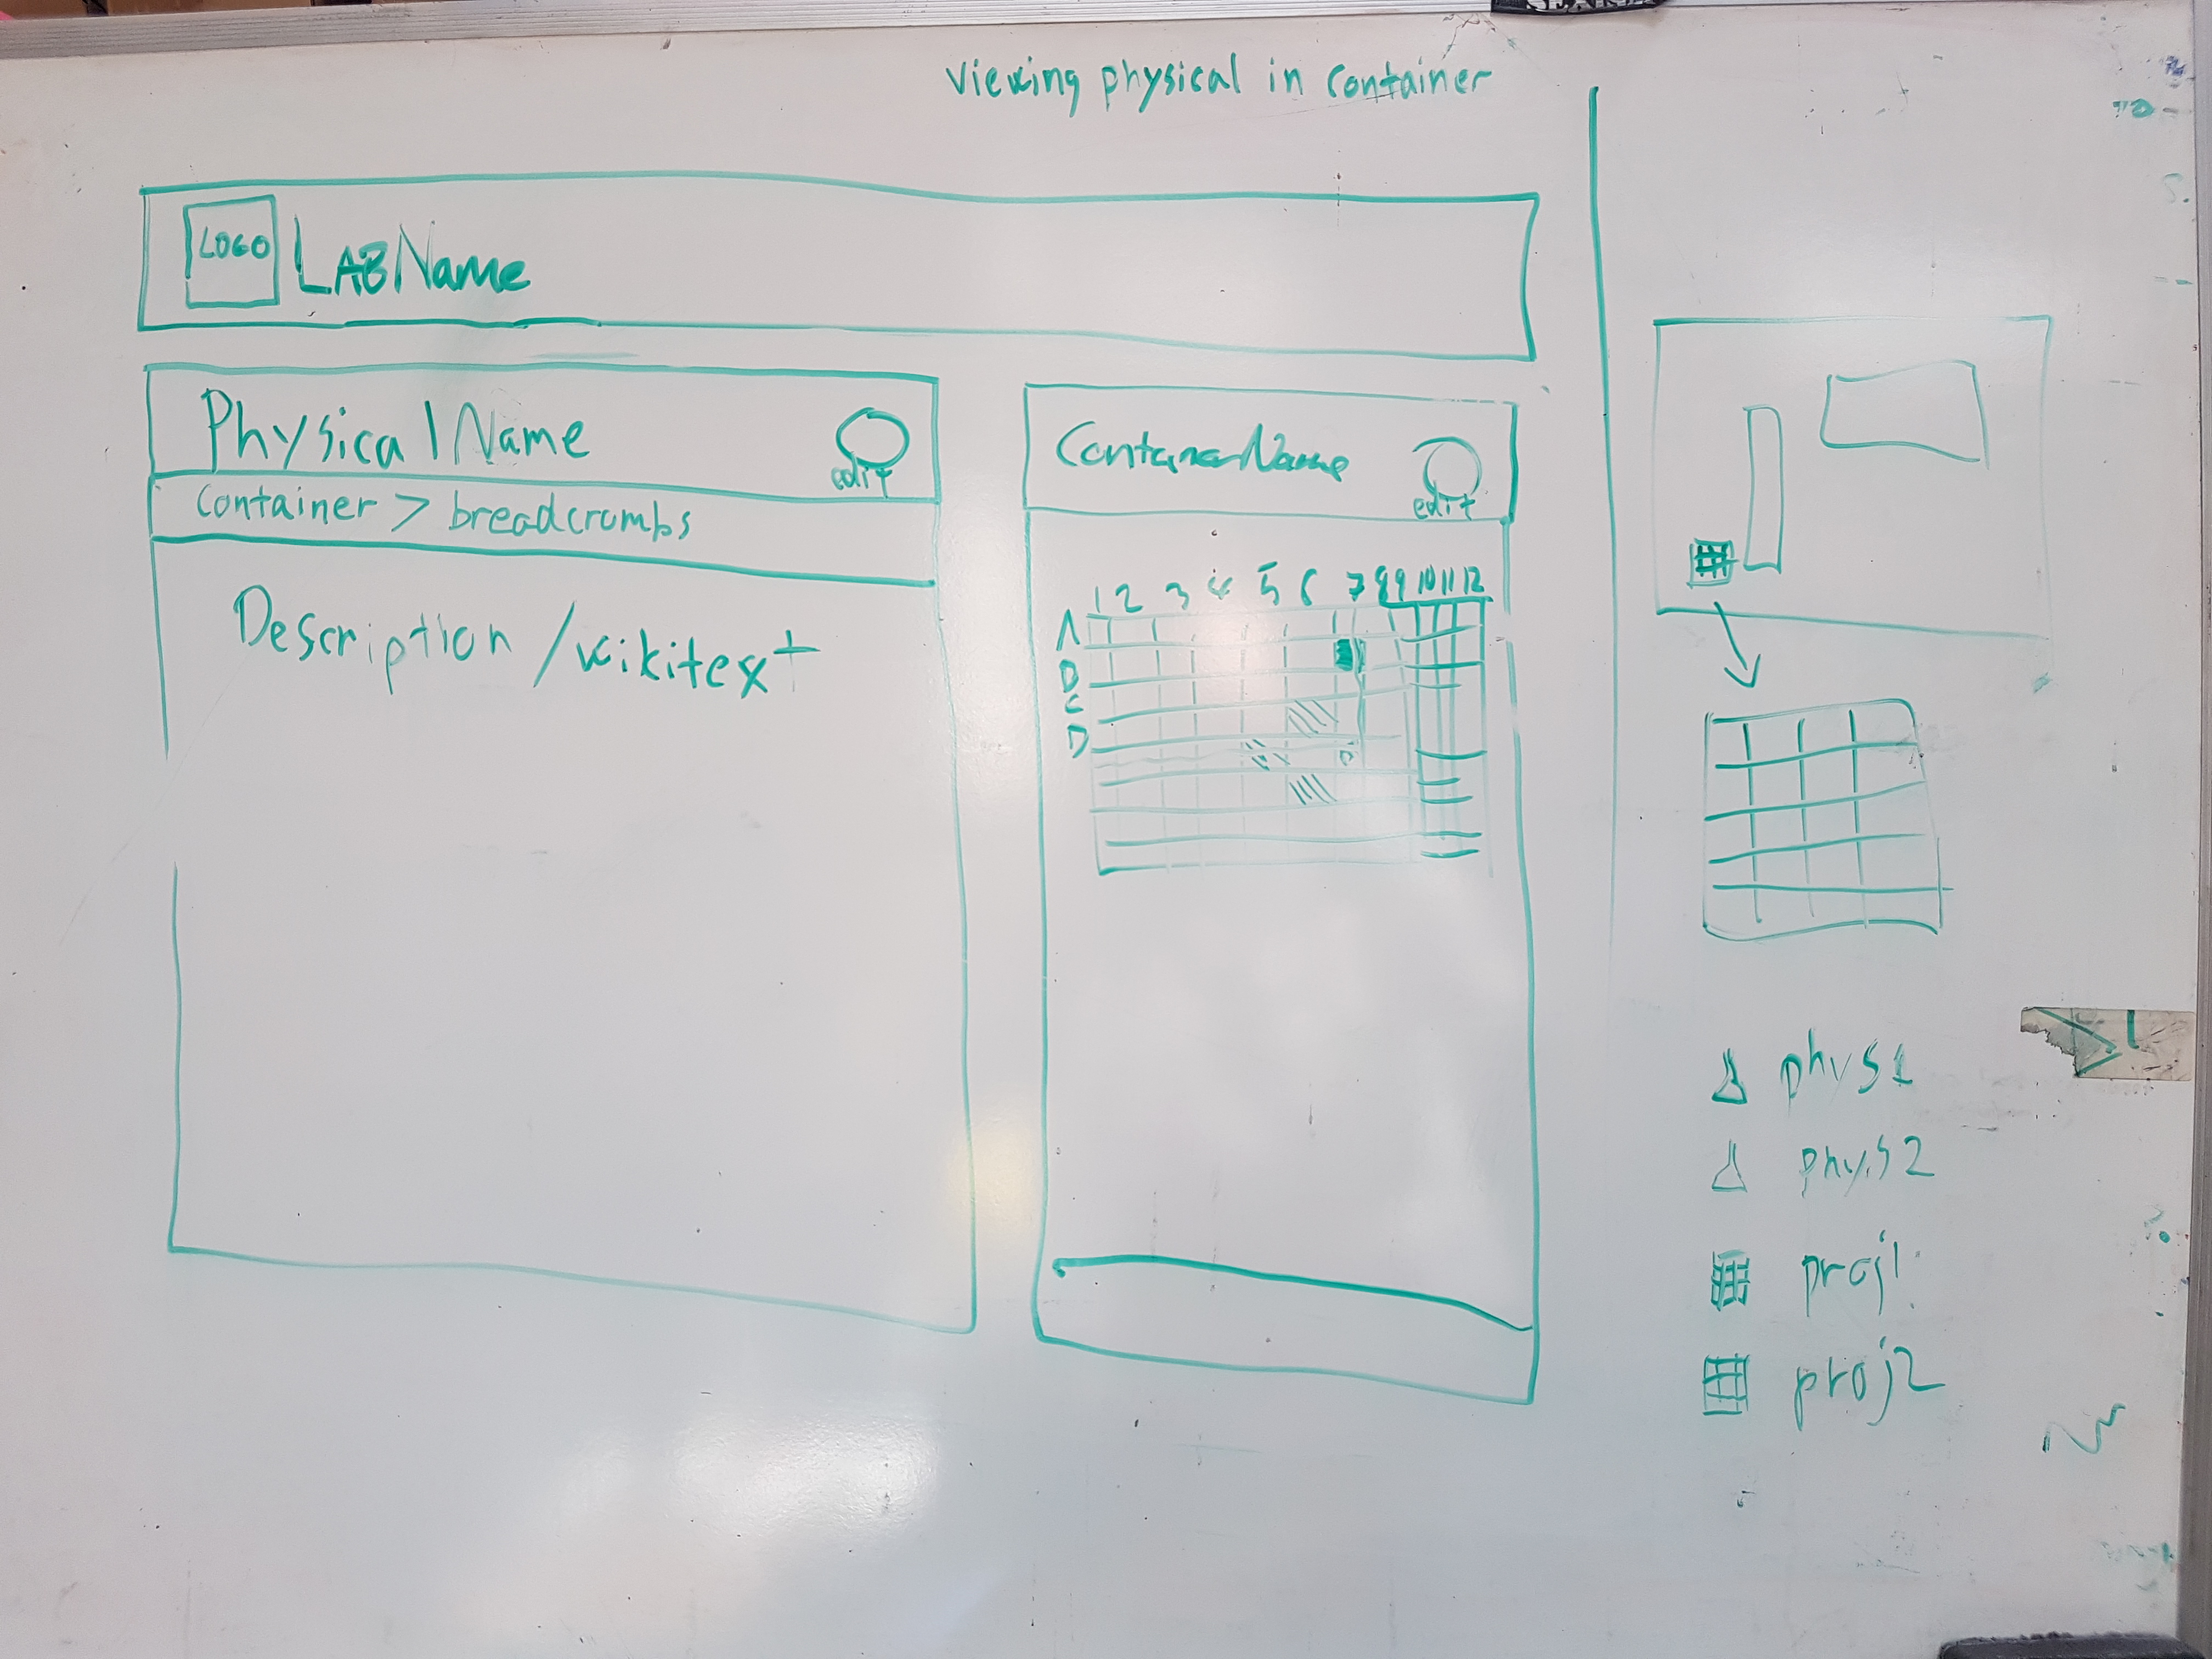 Viewing physical in container
LOGO
LABName
PhysicalName
edit
container > breadcrumbs
Description/wikitext
ContainerName
edit
1 2 3 4 5 6 7 8 9 10 11 12
A
B
C
D
phys1
phys2
proj1
proj2